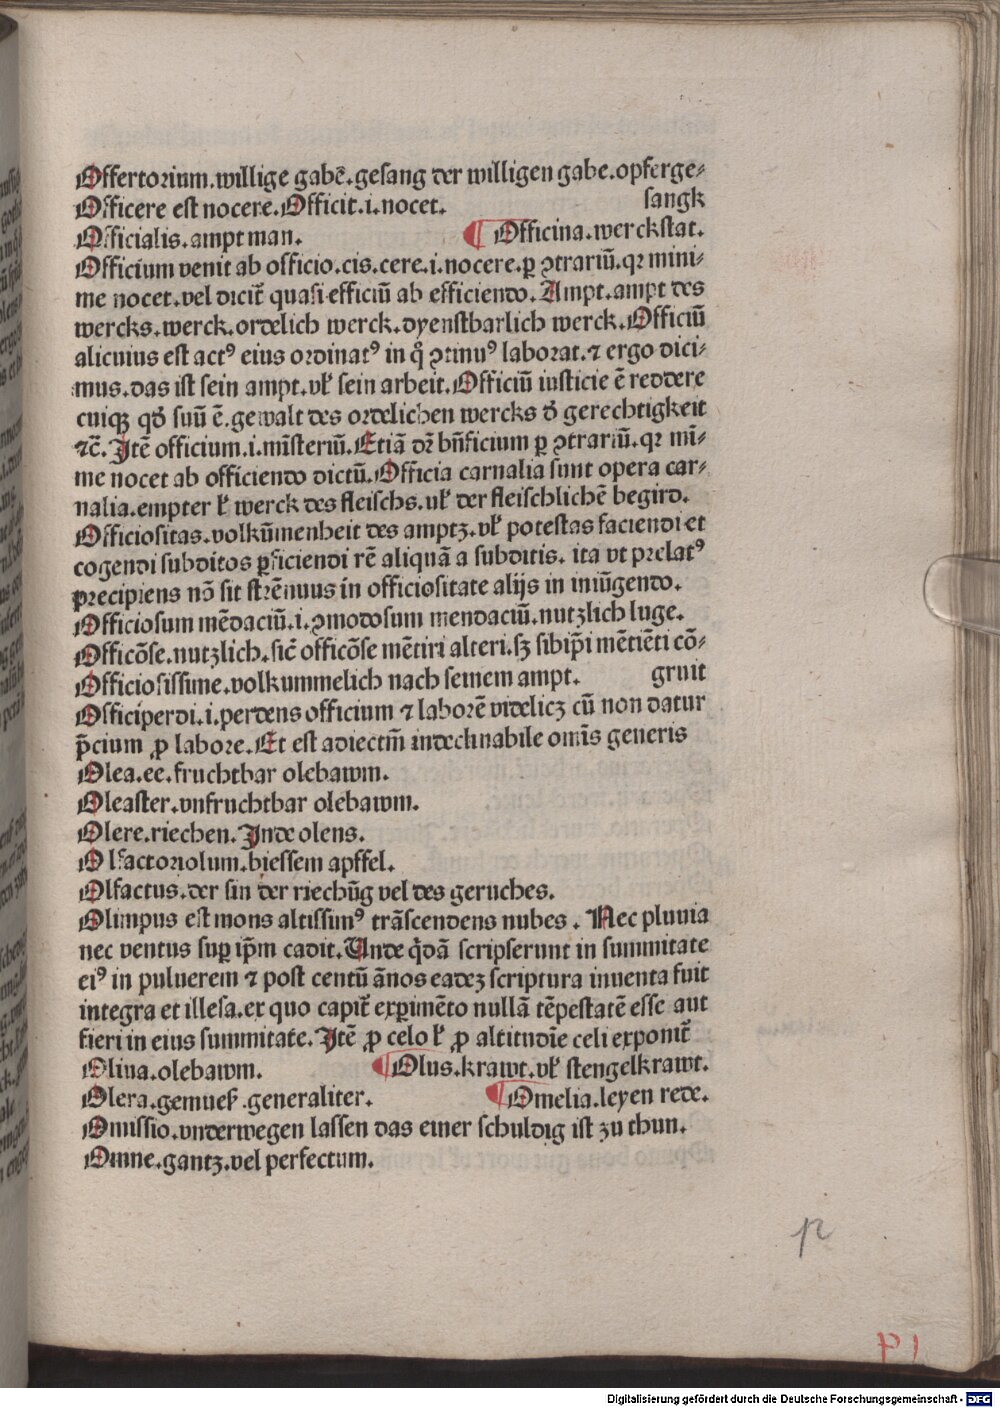 Offertorium.willige gabē.gesang der willigen gabe.opferge-
sangk
Officere est nocere.Officit.i.nocet.
Officialis.ampt man. ¶ Officina.werckstat.
Officium venit ab officio.cis.cere.i.nocere.ꝑ ꝯtrariū.qꝛ mini-
me nocet.vel dicit̄ quasi efficiū ab efficiendo.Ampt.ampt des
wercks.werck.ordelich werck.dyenstbarlich werck.Officiū
alicuius est actꝰ eius ordinatꝰ in q̊ ꝯtinuꝰ laborat.⁊ ergo dici-
mus.das ist sein ampt.vł sein arbeit.Officiū iusticie ē reddere
cuiqꝫ qđ suū ē.gewalt des ordelichen wercks đ gerechtigkeit
⁊c̄.Jtē officium.i.mīsteriū.Etiā dꝛ bn̄ficium ꝑ ꝯtrariū.qꝛ mī-
me nocet ab officiendo dictū.Officia carnalia sunt opera car-
nalia.empter ł werck des fleischs.vł der fleischlichē begird.
Officiositas.volkūmenheit des amptz.vł potestas faciendi et
cogendi subditos ꝑficiendi rē aliquā a subditis. ita vt prelatꝰ
precipiens nō sit strēnuus in officiositate alijs in iniūgendo.
Officiosum mēdaciū.i.ꝯmodosum mendaciū.nutzlich luge.
Officōse.nutzlich.sic̄ officōse mētiri alteri.sꝫ sibip̄i mētiēti cō-
gruit
Officiosissime.volkummelich nach seinem ampt.
Officiperdi.i.perdens officium ⁊ laborē videlicꝫ cū non datur
p̄cium ꝓ labore.Et est adiectm̄ indeclinabile om̄is generis
Olea.ee.fruchtbar olebawm.
Oleaster.vnfruchtbar olebawm.
Olere.riechen.Jnde olens.
Olfactoriolum.biessem apffel.
Olfactus.der sin der riechūg vel des geruches.
Olimpus est mons altissimꝰ trāscendens nubes . Nec pluuia
nec ventus suꝑ ip̄m cadit.Unde q̄dā scripserunt in summitate
eiꝰ in puluerem ⁊ post centū ānos eadeꝫ scriptura inuenta fuit
integra et illesa.ex quo capit̄ exꝑimēto nullā tēpestatē esse aut
fieri in eius summitate.Jtē ꝓ celo ł ꝓ altitudīe celi exponit̄
Oliua.olebawm. ¶ Olus.krawt.vł stengelkrawt.
Olera.gemueß.generaliter. ¶ Omelia.leyen rede.
Omissio.vnderwegen lassen das einer schuldig ist zu thun.
Omne.gantz.vel perfectum.
Digitalisierung gefördert durch die Deutsche Forschungsgemeinschaft - DFG